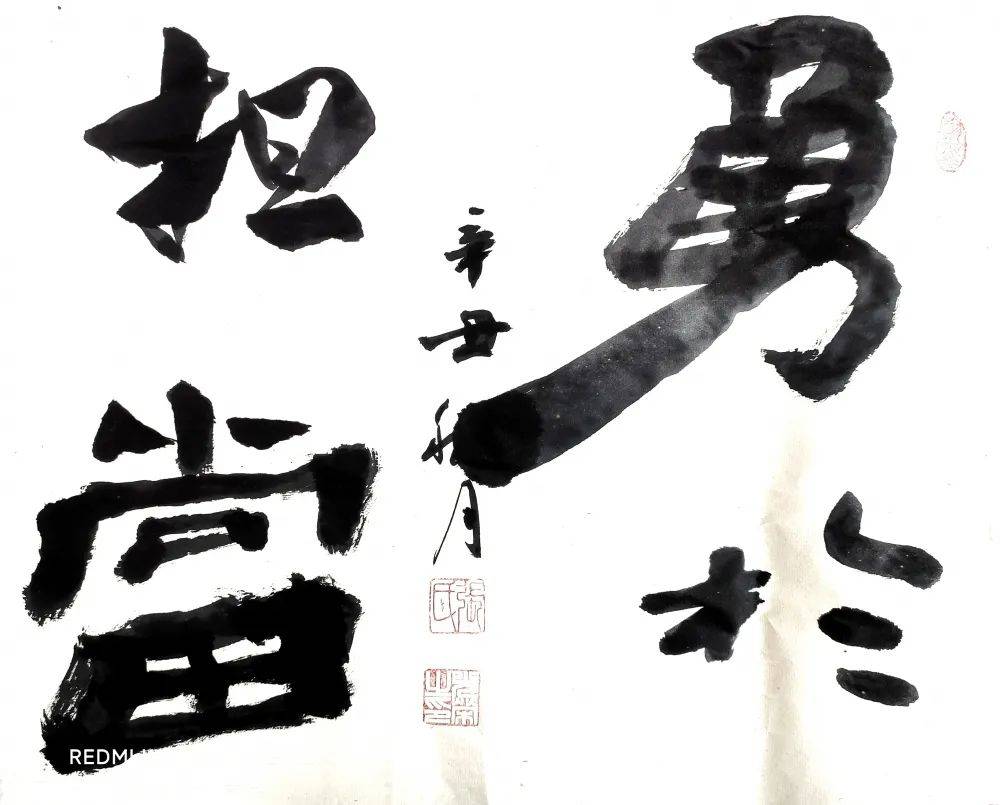 勇於
担當
辛丑秋月
張氏
REDMI